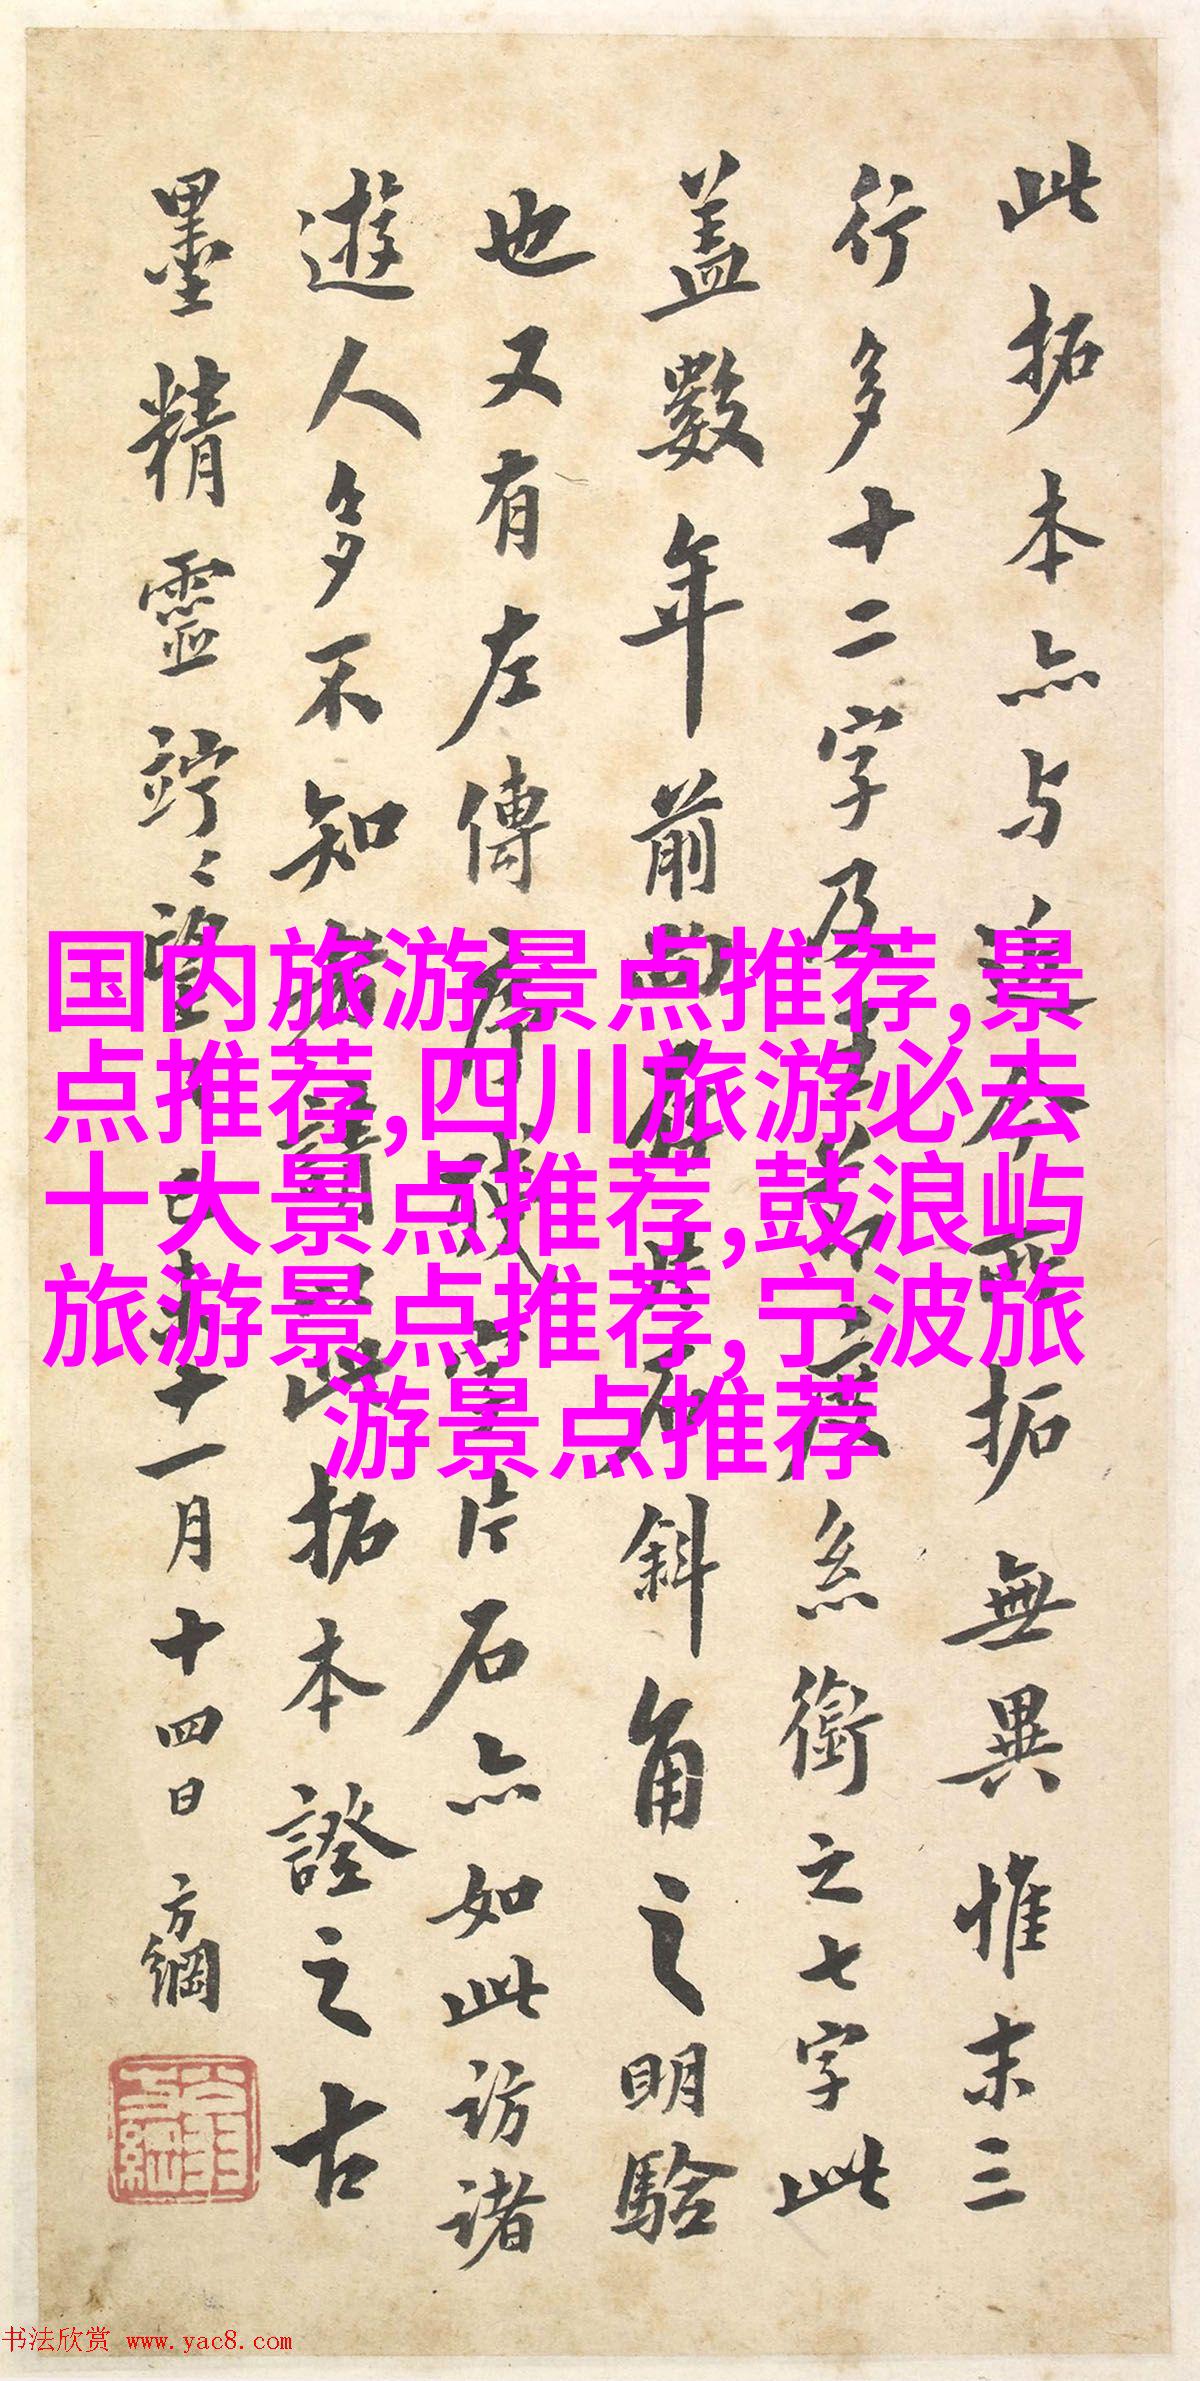 此拓本亦与近今所拓無異惟末三
行多十二字乃
糸銜之七字此
蓋數年前曲
斜角之明驗
也又有左傳序殘字片石亦如此访诸
遊人多不知
此拓本證之古
墨精靈竚〻望
十一月十四日 方綱
国内旅游景点推荐,景
点推荐,四川旅游必去
十大景点推荐,鼓浪屿
旅游景点推荐,宁波旅
游景点推荐
书法欣赏 www.yac8.com